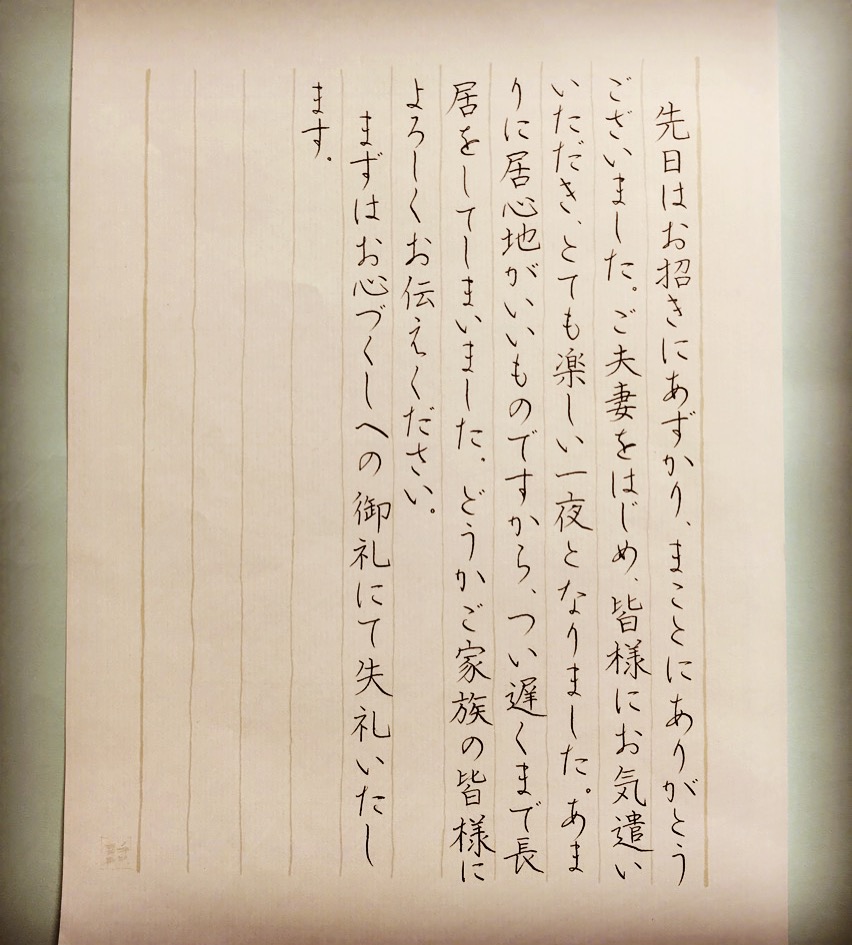 先日はお招きにあずかり、まことにありがとう
ございました。ご夫妻をはじめ、皆様にお気遣い
いただき、とても楽しい一夜となりました。あま
りに居心地がいいものですから、つい遅くまで長
居をしてしまいました。どうかご家族の皆様に
よろしくお伝えください。
まずはお心づくしへの御礼にて失礼いたし
ます。